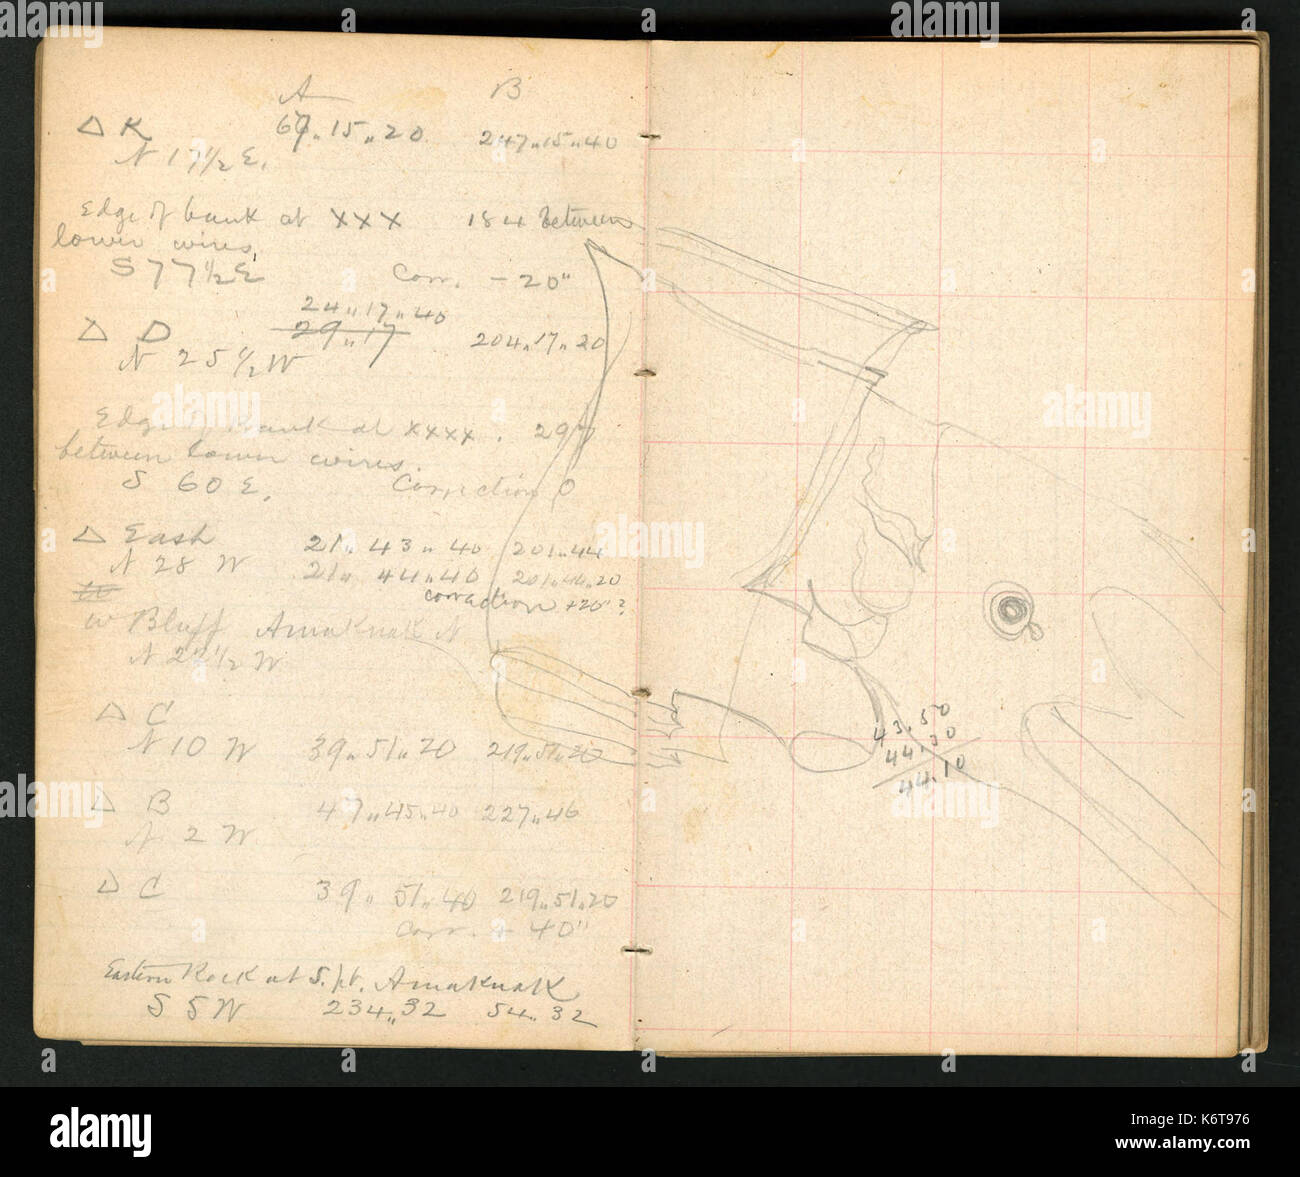 A B
△ K 67„15„20 247„15„40
N 17 1/2 E.
Edge of bank at xxx 184 between
lower wires.
S 77 1/2 E Corr. - 20"
24„17„40
△ D 29„17 204„17„20
N 25 1/2 W
Edge of bank at xxxx. 297
between lower wires.
S 60 E. Correction 0
△ East 21„43„40 201„44
N 28 W 21„44„40 201„44„20
correction +20"?
W Bluff Amaknak N
W
△ C
N 10 W 39„51„20 219„51„20
△ B 47„45„40 227„46
N 2 W
△ C 39„51„40 219„51„20
Corr. + 40"
Eastern Rock at S. pt. Amaknak
S 5 W 234„32 54„32
43.50
44.30
44.10
alamy
alamy
Image ID: K6T976
www.alamy.com